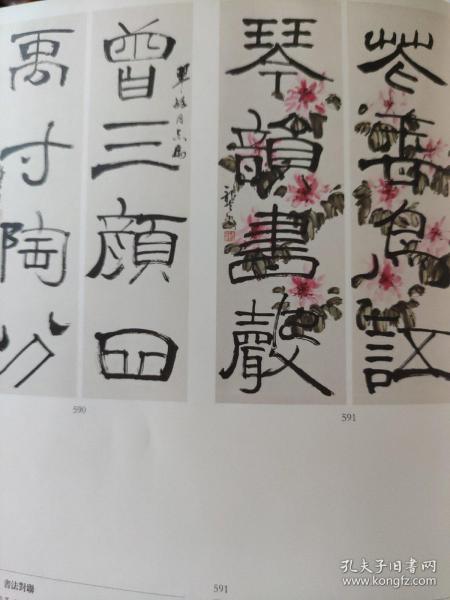 花香鳥語
琴韻書聲
591
曾三顏四
禹寸陶分
590
書法對聯
591
孔夫子旧书网
www.kongfz.com